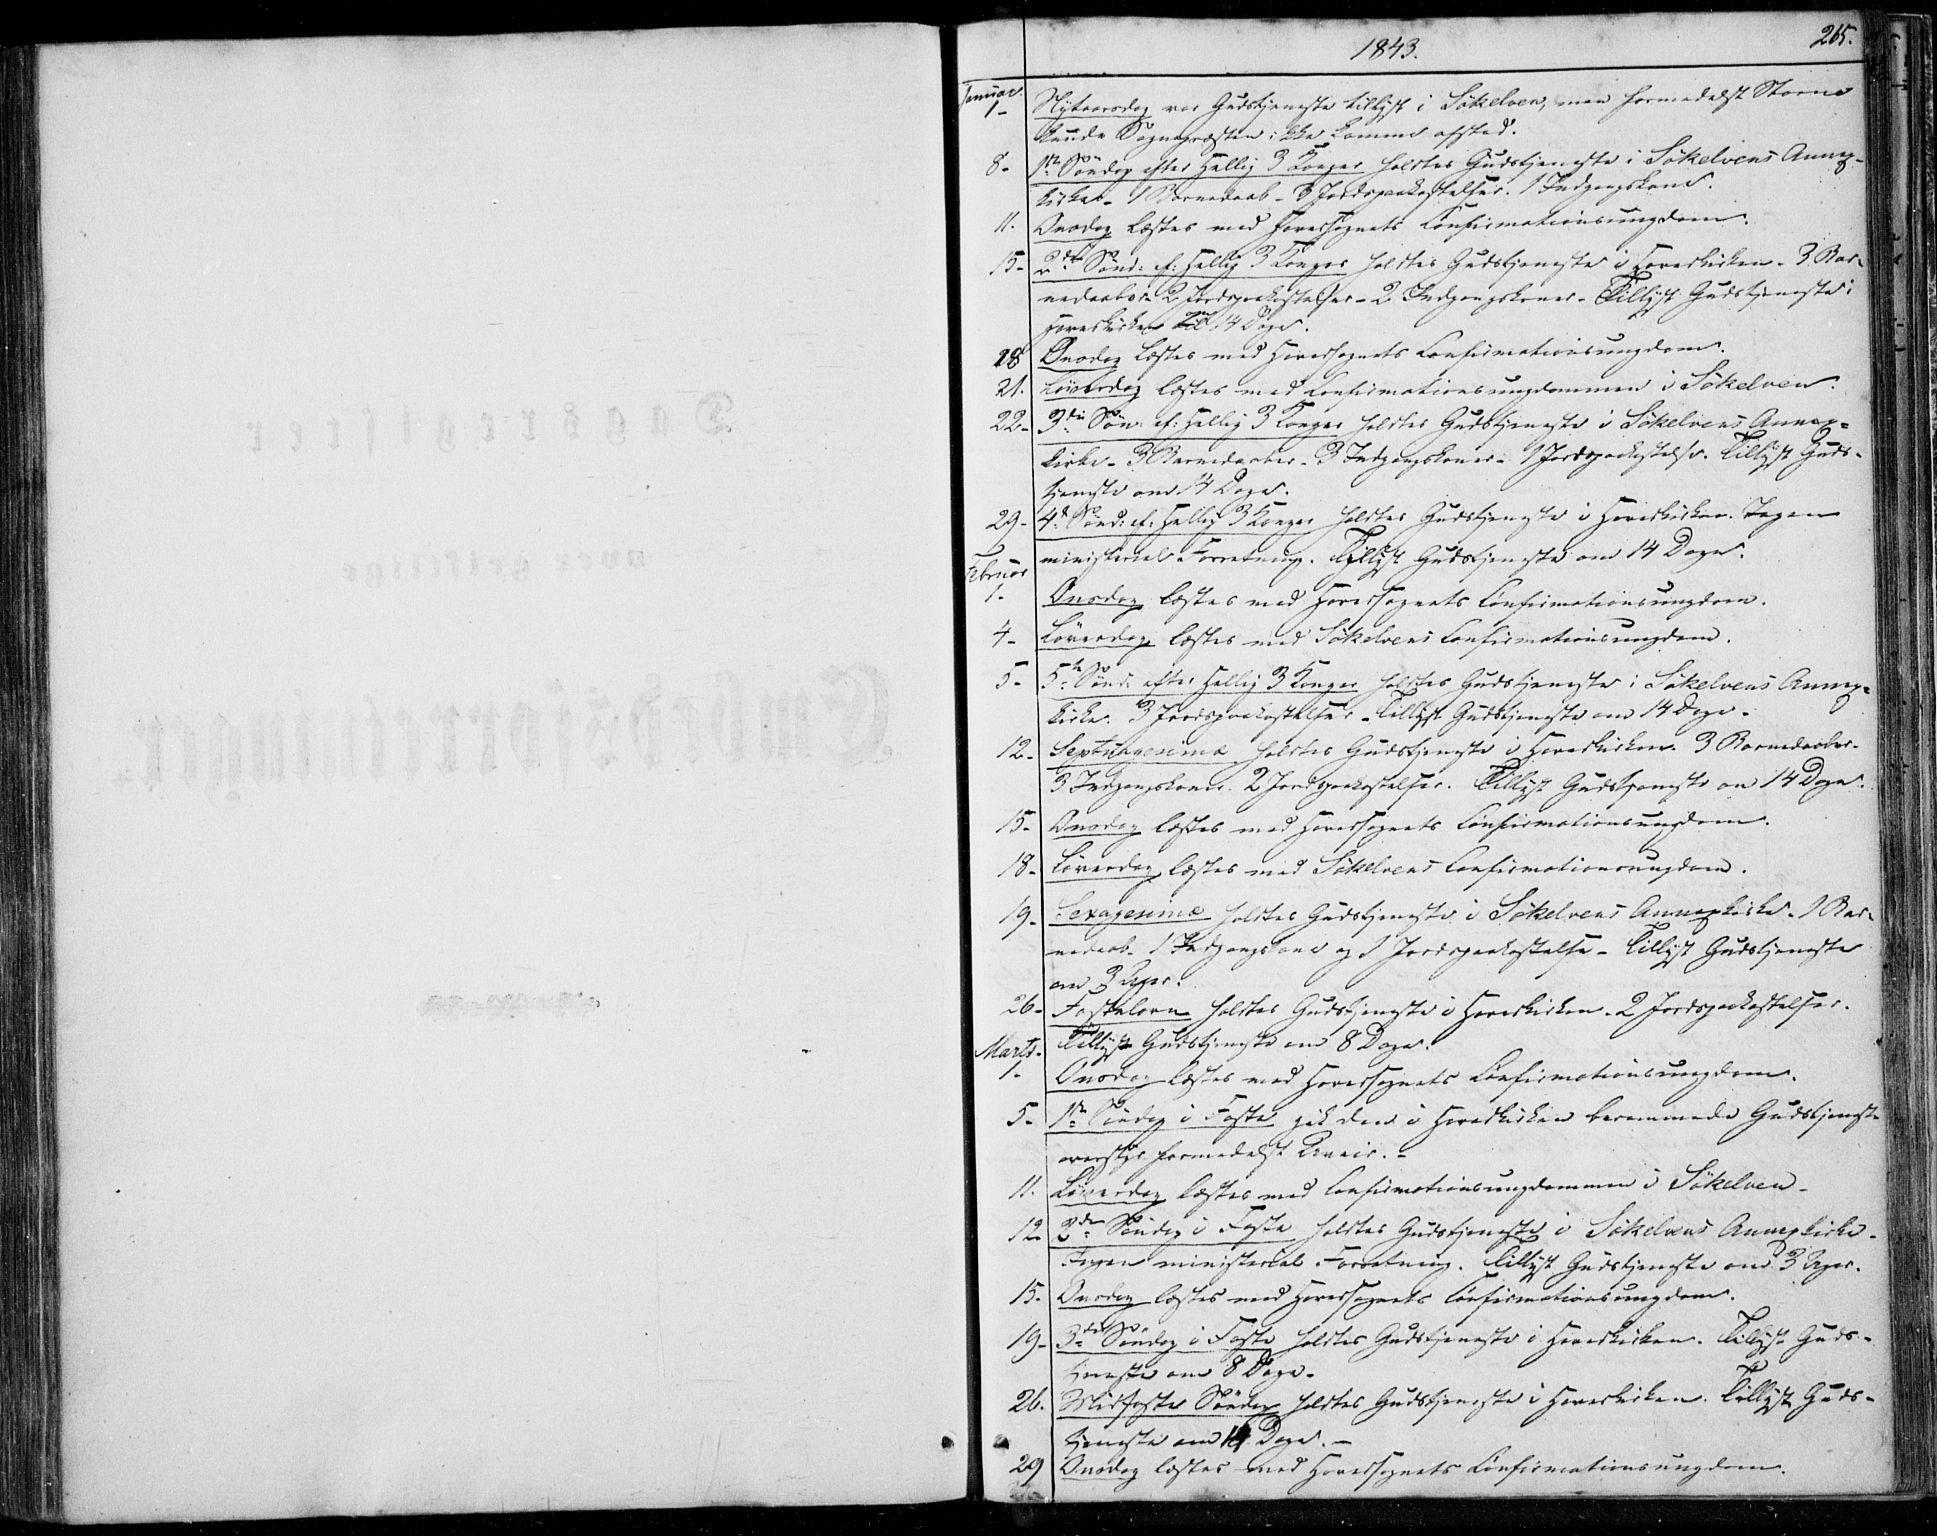 265.
1843.
Januar
1- Nytaarsdag var Gudstjeneste tillyst i Sökelven, men formedelst Storm
kunde Sognepræsten ikke komme afsted.
8- 1ste Söndag efter Hellig 3 Konger holdtes Gudstjeneste i Sökelvens Annex-
kirke- 1 Barnedaab- 3 Jordspaakastelser. 1 Indgangskone.
11. Onsdag læstes med Hovedsognets Confirmationsungdom.
15- 2den Sönd: ef: Hellig 3 Konger holdtes Gudstjeneste i Hovedkirken- 3 Bar-
nedaab- 2 Jordspaakastelser- 2 Indgangskoner- Tillyst Gudstjeneste i
Hovedkirken om 14 Dage.
18 Onsdag læstes med Hovedsognets Confirmationsungdom.
21. Löverdag læstes med Confirmationsungdommen i Sökelven.
22- 3die Sön: ef: Hellig 3 Konger holdtes Gudstjeneste i Sökelvens Annex-
kirke- 3 Barnedaaber- 3 Indgangskoner- 1 Jordspaakastelse. Tillyst Guds-
tjeneste om 14 Dage.
29- 4de Sönd: ef: Hellig 3 Konger holdtes Gudstjeneste i Hovedkirken. Ingen
ministerial Forretning. Tillyst Gudstjeneste om 14 Dage.
Februar
1. Onsdag læstes med Hovedsognets Confirmationsungdom.
4- Löverdag læstes med Sökelvens Confirmationsungdom.
5- 5te Sönd: efter Hellig 3 Konger holdtes Gudstjeneste i Sökelvens Annex-
kirke. 3 Jordspaakastelser- Tillyst Gudstjeneste om 14 Dage-
12- Septuagesima holdtes Gudstjeneste i Hovedkirken. 3 Barnedaaber-
3 Indgangskoner. 2 Jordspaakastelser. Tillyst Gudstjeneste om 14 Dage.
15- Onsdag læstes med Hovedsognets Confirmationsungdom.
18- Löverdag læstes med Sökelvens Confirmationsungdom.
19- Sexagesima holdtes Gudstjeneste i Sökelvens Annexkirke- 1 Bar-
nedaab- 1 Indgangskone og 1 Jordspaakastelse- Tillyst Gudstjeneste
om 3 Uger.
26- Fastelavn holdtes Gudstjeneste i Hovedkirken. 2 Jordspaakastelser.
Tillyst Gudstjeneste om 8 Dage.
Marts-
1- Onsdag læstes med Hovedsognets Confirmationsungdom.
5- 1ste Söndag i Faste gik den i Hovedkirken berammede Gudstjeneste
overstyr formedelst Uveir.-
11. Löverdag læstes med Confirmationsungdommen i Sökelven-
12- 2den Söndag i Faste holdtes Gudstjeneste i Sökelvens Annexkirke-
Ingen ministerial Forretning. Tillyst Gudstjeneste om 3 Uger.
15. Onsdag læstes med Hovedsognets Confirmationsungdom.
19- 3die Söndag i Faste holdtes Gudstjeneste i Hovedkirken. Tillyst Guds-
tjeneste om 8 Dage-
26. Midfaste Söndag holdtes Gudstjeneste i Hovedkirken. Tillyst Guds-
tjeneste om 14 Dage.-
29 Onsdag læstes med Hovedsognets Confirmationsungdom.